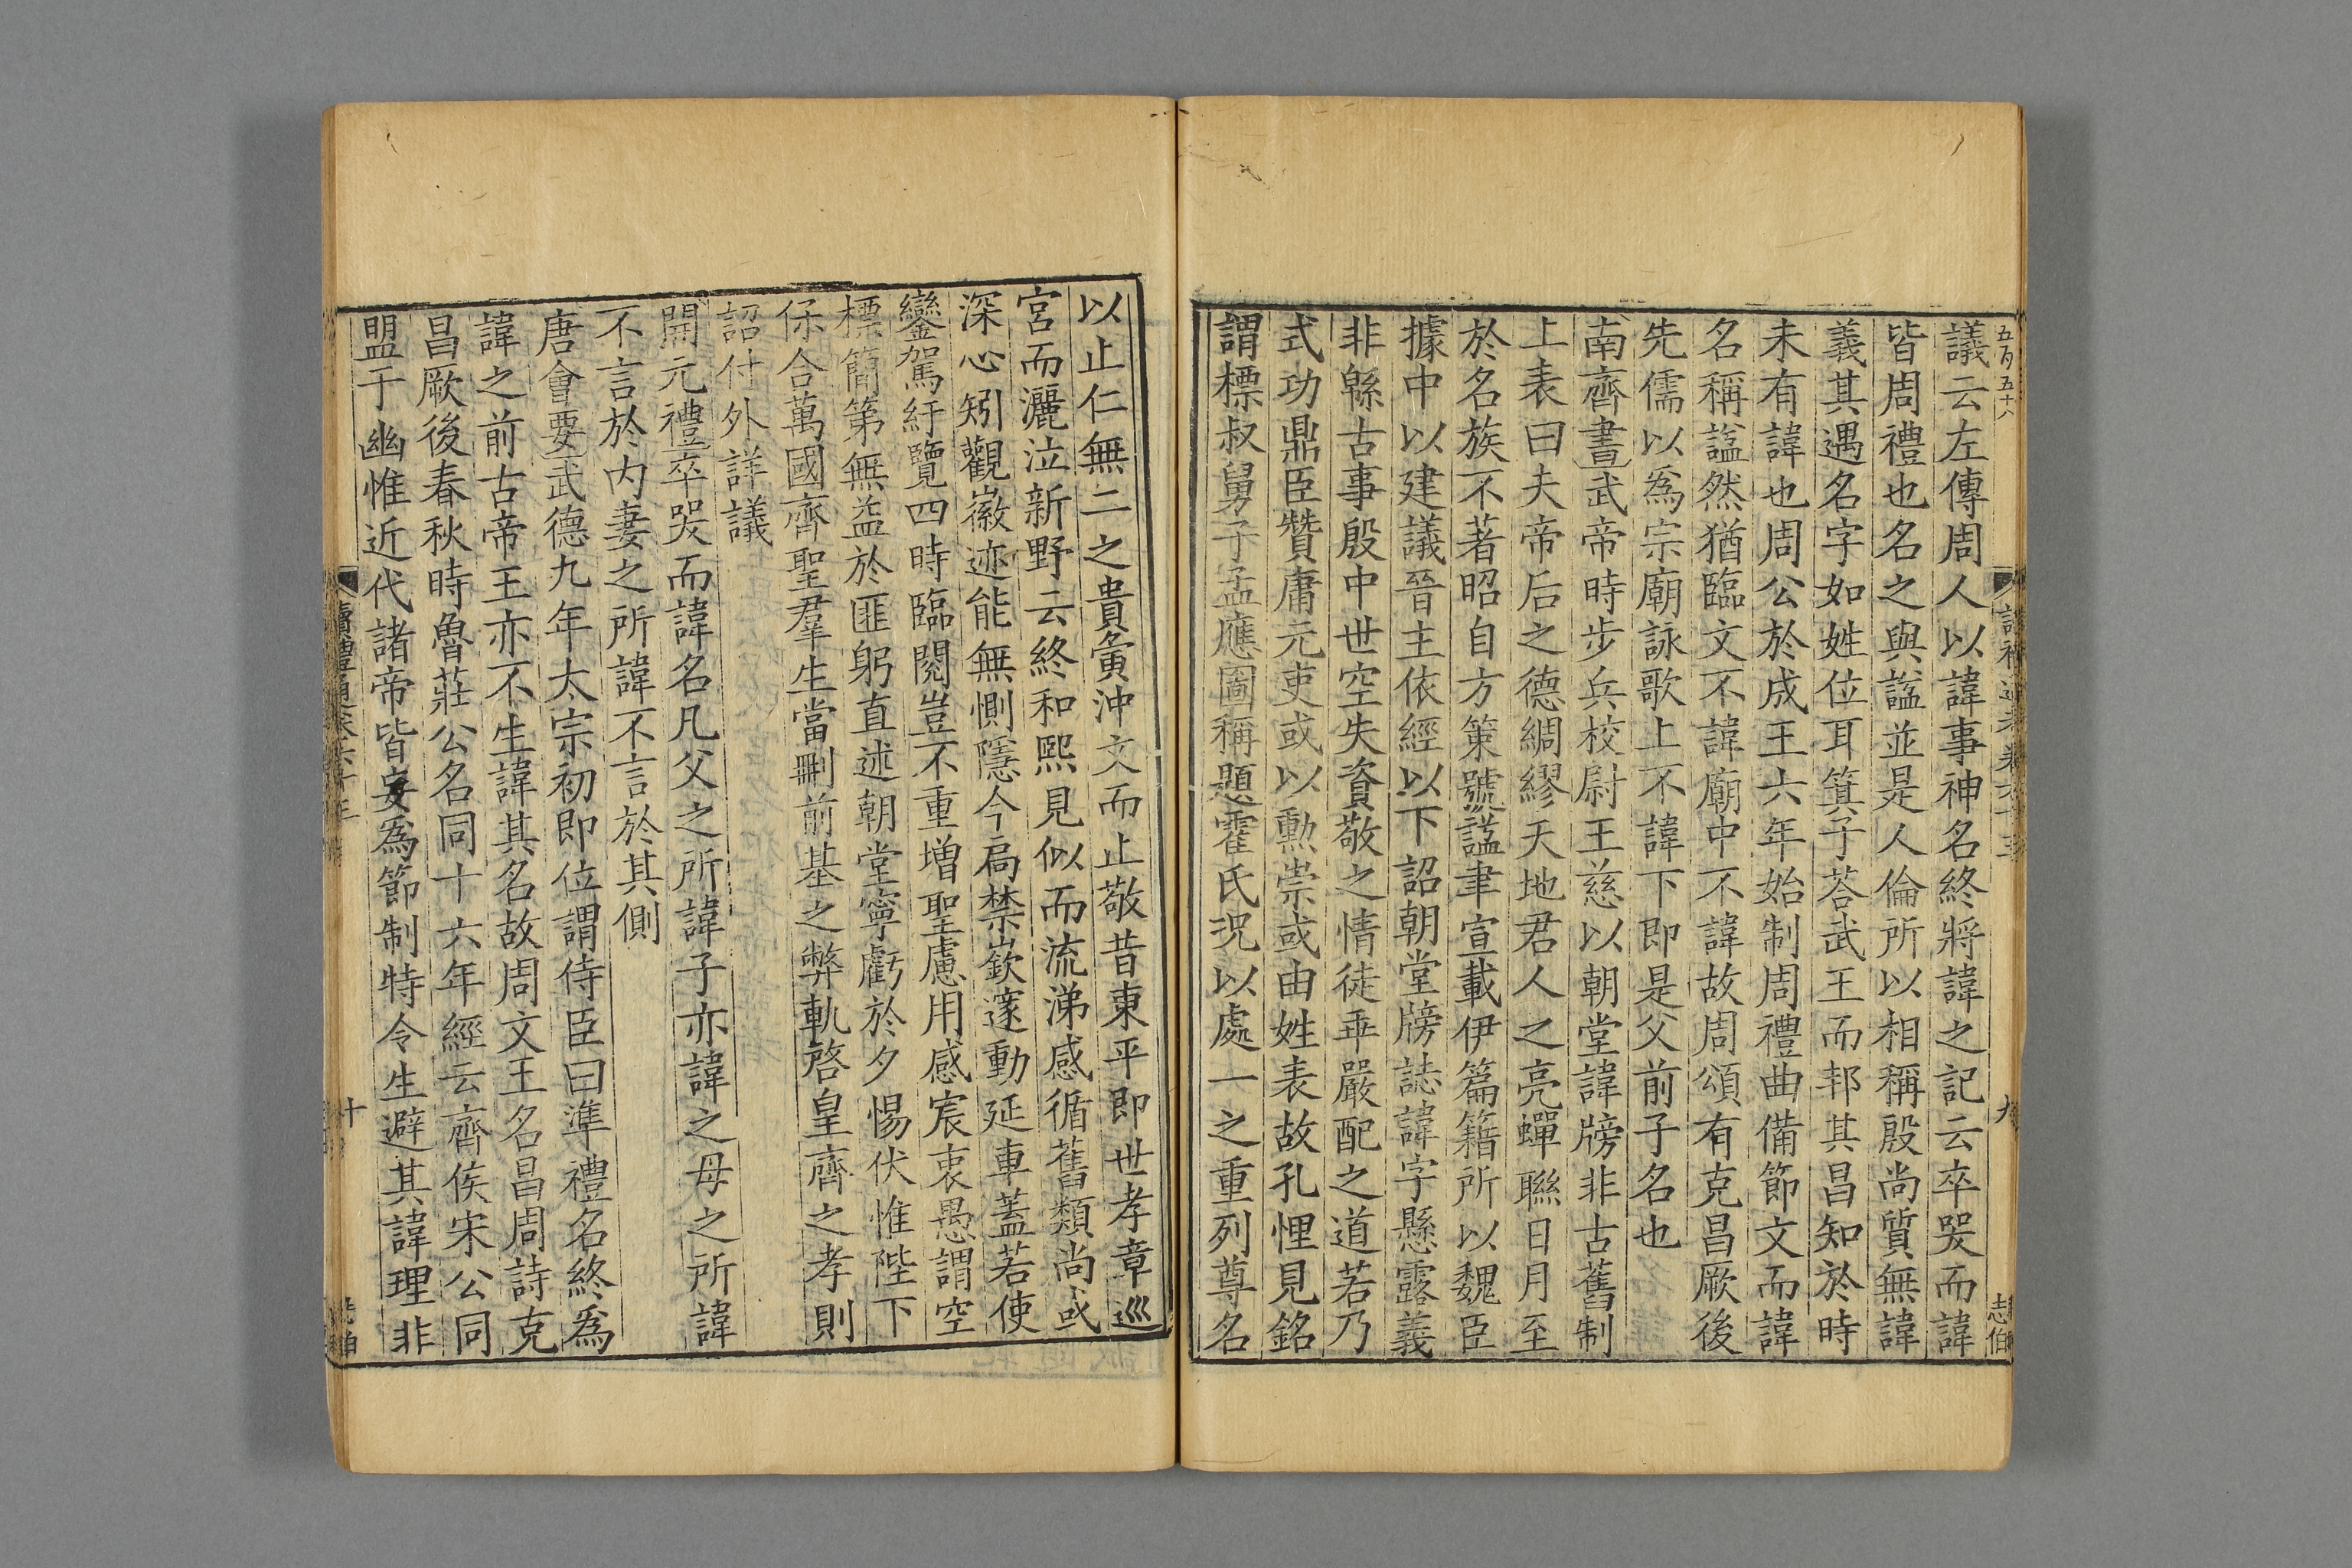 議云左傳周人以諱事神名終將諱之記云卒哭而諱
皆周禮也名之與諡並是人倫所以相稱殷尚質無諱
義其遇名字如姓位耳箕子荅武王而邦其昌知於時
未有諱也周公於成王六年始制周禮曲備節文而諱
名稱諡然猶臨文不諱廟中不諱故周頌有克昌厥後
先儒以爲宗廟詠歌上不諱下即是父前子名也
南齊書武帝時步兵校尉王慈以朝堂諱牓非古舊制
上表曰夫帝后之德綢繆天地君人之亮蟬聯日月至
於名族不著昭自方策號諡聿宣載伊篇籍所以魏臣
據中以建議晉主依經以下詔朝堂牓誌諱字懸露義
非緜古事殷中世空失資敬之情徒乖嚴配之道若乃
式功鼎臣贊庸元吏或以勳崇或由姓表故孔悝見銘
謂標叔舅子孟應圖稱題霍氏況以處一之重列尊名
以止仁無二之貴夤沖文而止敬昔東平即世孝章巡
宮而灑泣新野云終和熙見似而流涕感循舊類尚或
深心矧觀徽迹能無惻隱今扃禁嶔邃動延車蓋若使
鑾駕紆覽四時臨閱豈不重増聖慮用感宸衷愚謂空
標簡第無益於匪躬直述朝堂寧虧於夕惕伏惟陛下
保合萬國齊聖羣生當刪前基之弊軌啓皇齊之孝則
詔付外詳議
開元禮卒哭而諱名凡父之所諱子亦諱之母之所諱
不言於内妻之所諱不言於其側
唐會要武德九年太宗初即位謂侍臣曰準禮名終爲
諱之前古帝王亦不生諱其名故周文王名昌周詩克
昌厥後春秋時魯莊公名同十六年經云齊侯宋公同
盟于幽惟近代諸帝皆妄爲節制特令生避其諱理非
五百五十八
九
志伯
十